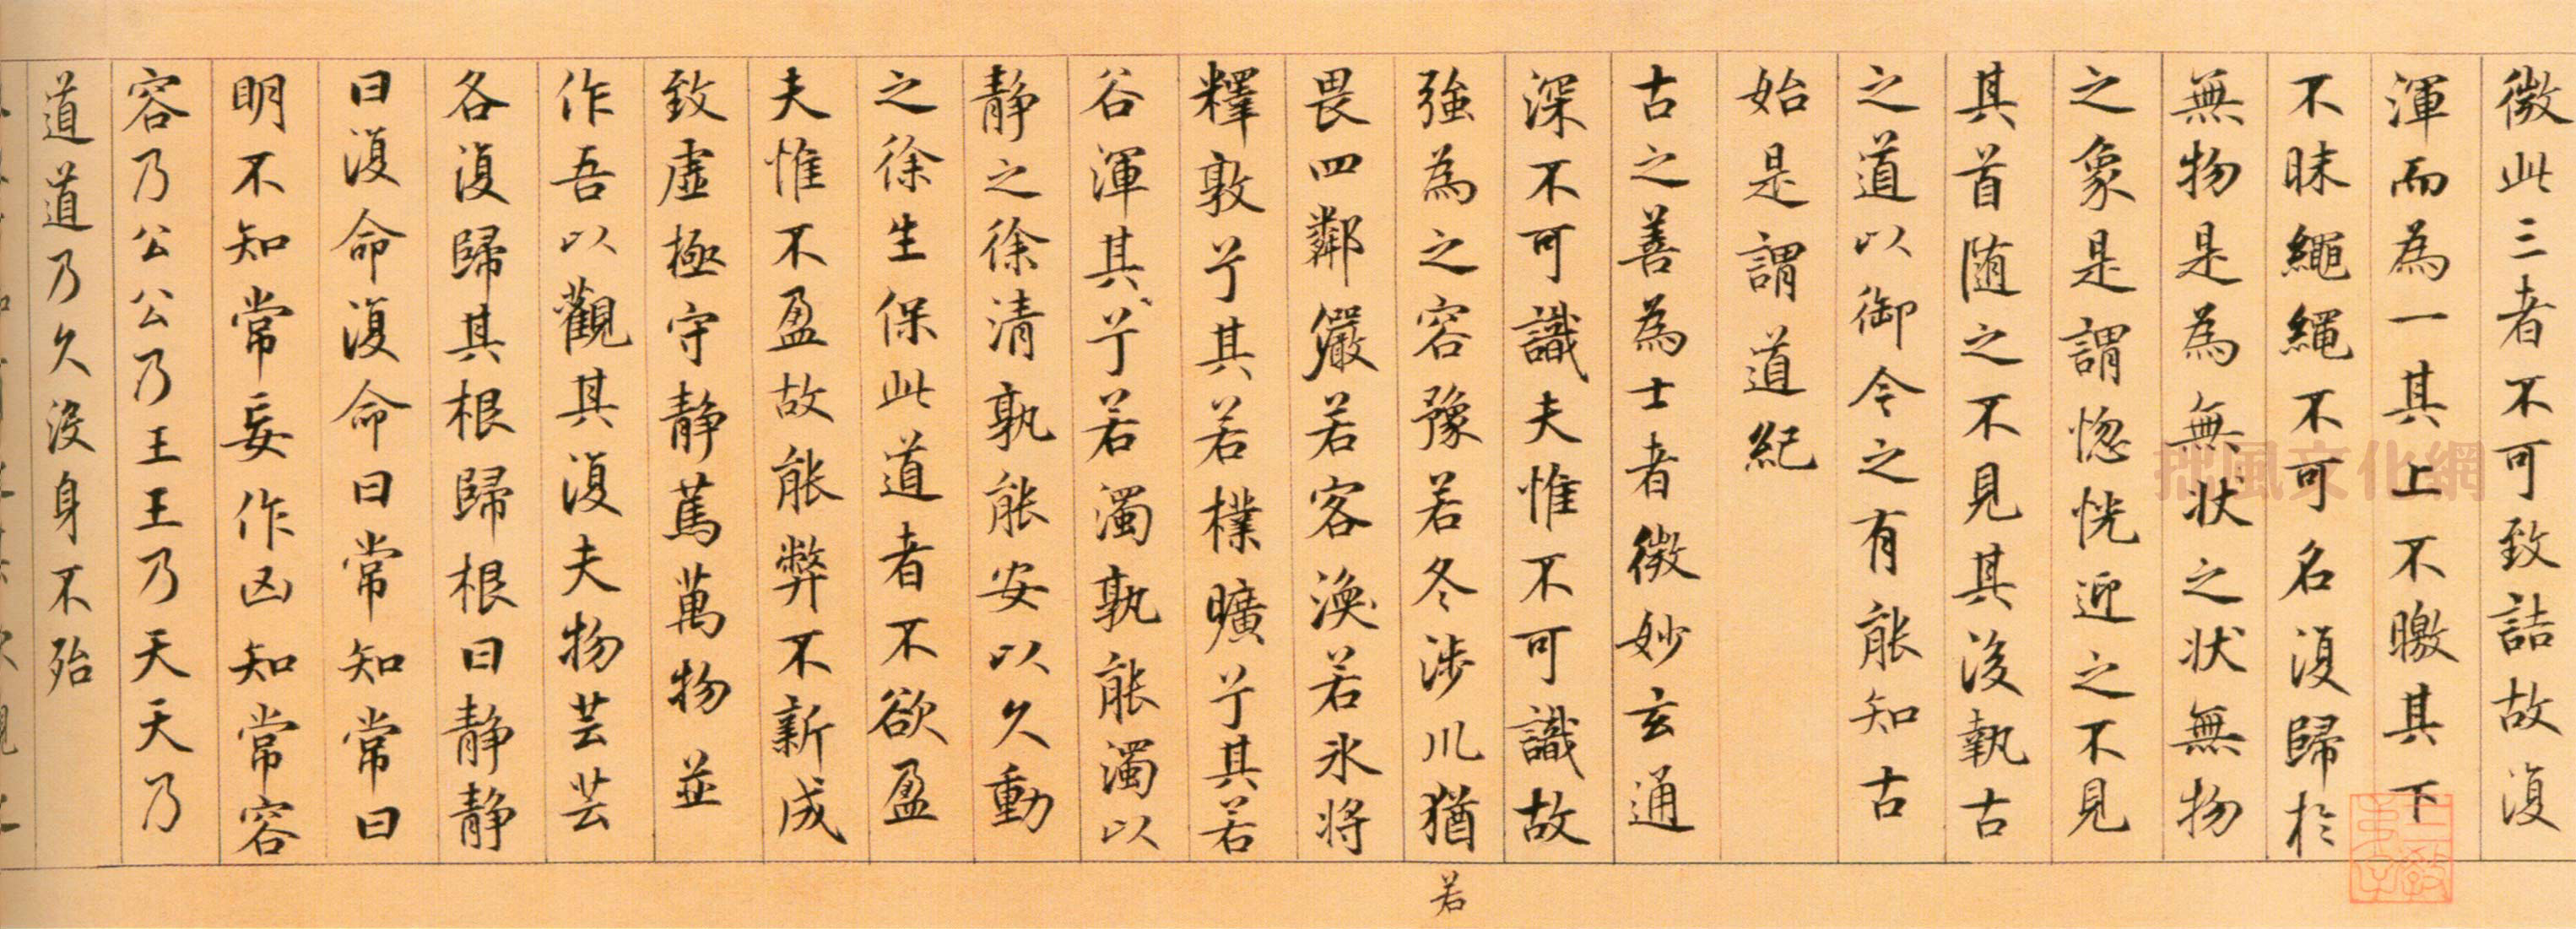 微此三者不可致詰故復
渾而為一其上不曒其下
不昧繩繩不可名復歸於
無物是為無狀之狀無物
之象是謂惚恍近之不見
其首随之不見其後執古
之道以御今之有能知古
始是謂道紀
古之善為士者微妙玄通
深不可識夫惟不可識故
強為之容豫若冬涉川猶
若
畏四鄰儼若客渙若氷將
釋敦兮其若樸曠兮其若
谷渾其兮若濁孰能濁以
静之徐清孰能安以久動
之徐生保此道者不欲盈
夫惟不盈故能弊不新成
致虛極守静篤萬物並
作吾以觀其復夫物芸芸
各復歸其根歸根曰静静
曰復命復命曰常知常曰
明不知常妄作凶知常容
容乃公公乃王王乃天天乃
道道乃久沒身不殆
拙風文化網